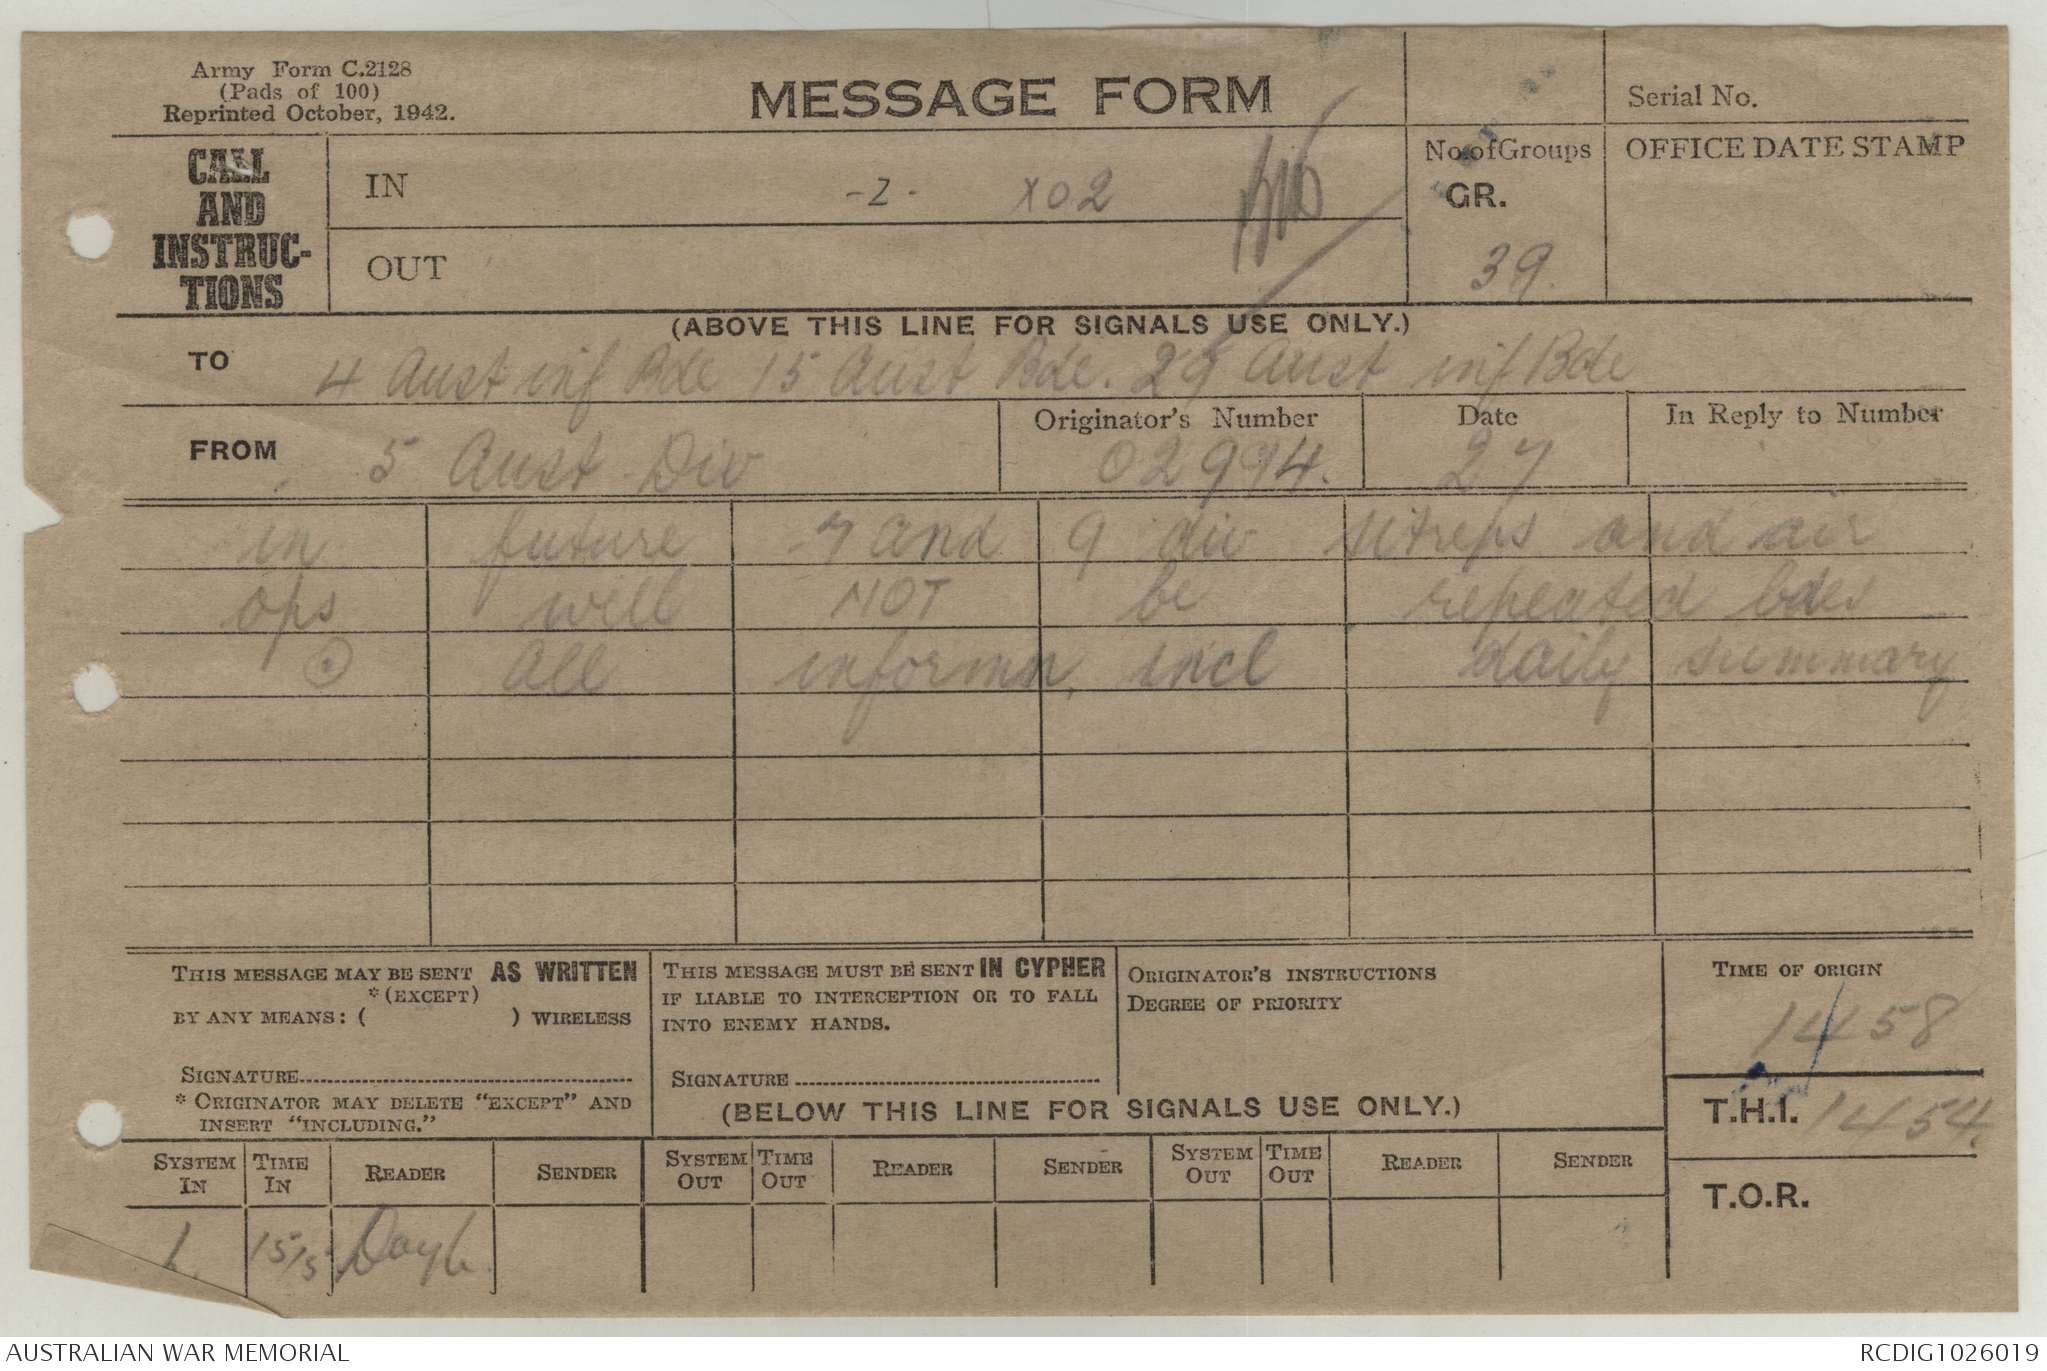 Army Form C.2128
(Pads of 100)
Reprinted October, 1942.
MESSAGE FORM
Serial No.
CALL AND INSTRUC-TIONS
IN -2- X02
OUT
No. of Groups
GR.
39.
OFFICE DATE STAMP
(ABOVE THIS LINE FOR SIGNALS USE ONLY.)
TO 4 Aust inf Bde 15 Aust Bde. 29 Aust inf Bde
FROM 5 Aust Div
Originator's Number
02994.
Date
27
In Reply to Number
in future 7 and 9 div sitreps and air
ops will NOT be repeated bdes
⊙ All informn, incl daily summary
THIS MESSAGE MAY BE SENT AS WRITTEN
*(EXCEPT)
BY ANY MEANS: ( ) WIRELESS
SIGNATURE
* ORIGINATOR MAY DELETE "EXCEPT" AND
INSERT "INCLUDING."
THIS MESSAGE MUST BE SENT IN CYPHER
IF LIABLE TO INTERCEPTION OR TO FALL
INTO ENEMY HANDS.
SIGNATURE
ORIGINATOR'S INSTRUCTIONS
DEGREE OF PRIORITY
TIME OF ORIGIN
1458
(BELOW THIS LINE FOR SIGNALS USE ONLY.)
T.H.I. 1454.
T.O.R.
SYSTEM IN TIME IN READER SENDER SYSTEM OUT TIME OUT READER SENDER SYSTEM OUT TIME OUT READER SENDER
L 1515
AUSTRALIAN WAR MEMORIAL
RCDIG1026019